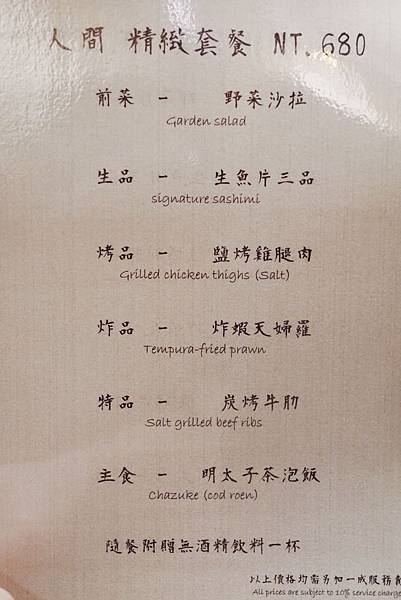 人間 精緻套餐 NT. 680
前菜 - 野菜沙拉
Garden salad
生品 - 生魚片三品
signature sashimi
烤品 - 鹽烤雞腿肉
Grilled chicken thighs (Salt)
炸品 - 炸蝦天婦羅
Tempura-fried prawn
特品 - 炭烤牛肋
Salt grilled beef ribs
主食 - 明太子茶泡飯
Chazuke (cod roen)
隨餐附贈無酒精飲料一杯
以上價格均需另加一成服務費
All prices are subject to 10% service charge